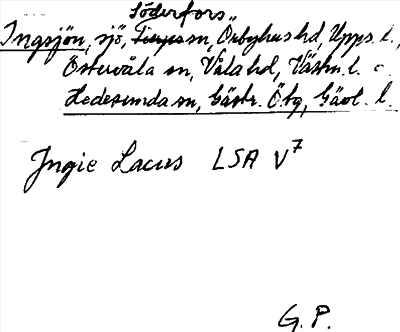 Söderfors
Ingsjön, sjö, sn, Örbyhus hd, Upps. l.,
Östervåla sn, Våla hd, Västm. l. o.
Hedesunda sn, Gästr. Öbg, Gävl. l.
Ingie Lacus LSA V7
G. P.